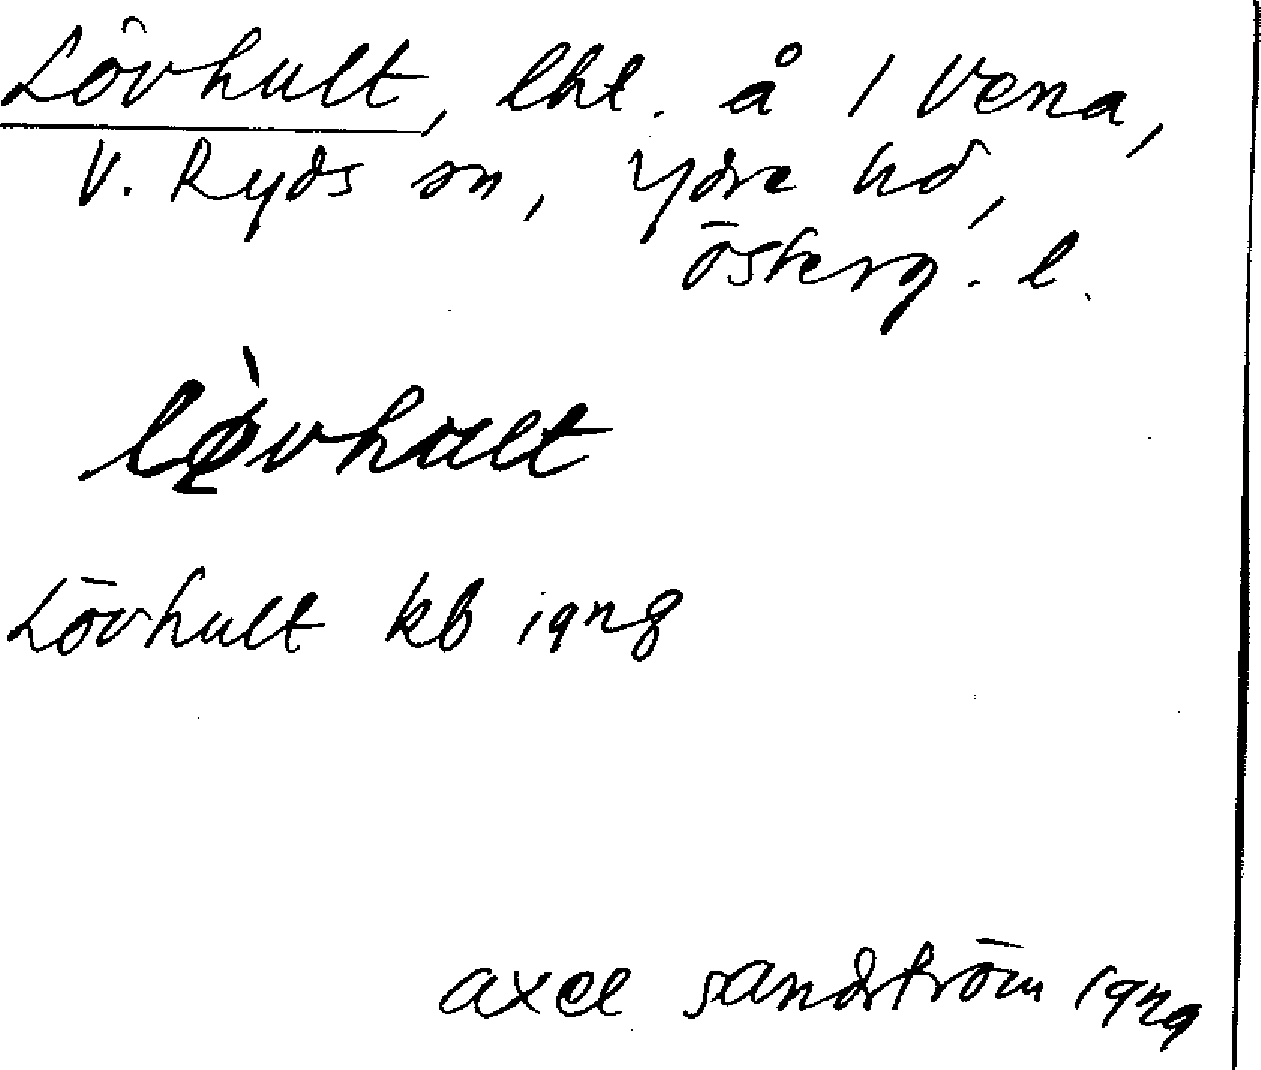 Lövhult, lht. å 1 Vena,
V. Ryds sn, Ydre hd,
Österg. l.
lø̀vhult
Lövhult kb 1928
Axel Sandström 1929